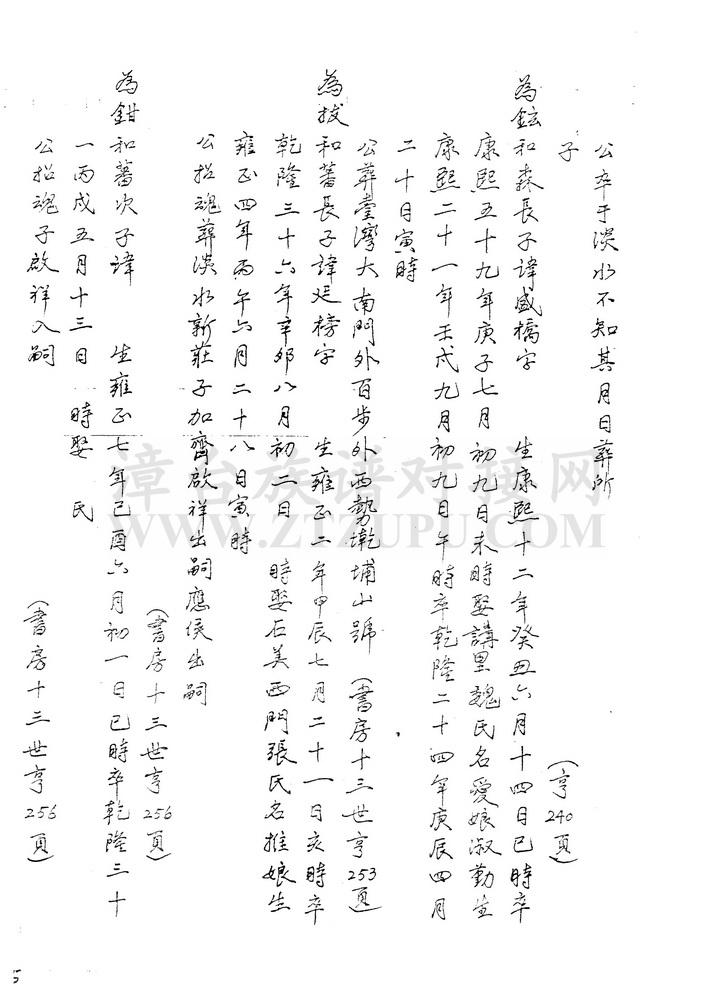 公卒于淡水不知其月日葬所
子
(亨240頁)
為鉉和森長子諱盛橋字 生康熙十二年癸丑六月十四日巳時卒
康熙五十九年庚子七月初九日未時娶講里魏氏名愛娘淑勤生
康熙二十一年壬戌九月初九日午時卒乾隆二十四年庚辰四月
二十日寅時
公葬臺灣大南門外百步外西勢墘埔山號 (書房十三世亨253頁)
為拔和蕃長子諱廷榜字 生雍正二年甲辰七月二十一日亥時卒
乾隆三十六年辛卯八月初二日 時娶石美西門張氏名推娘生
雍正四年丙午六月二十八日寅時
公招魂葬淡水新莊子加齊啟祥出嗣應侯出嗣
(書房十三世亨256頁)
為鉗和蕃次子諱 生雍正七年己酉六月初一日巳時卒乾隆三十
一丙戌五月十三日 時娶 氏
公招魂子啟祥入嗣 (書房十三世亨256頁)
漳台族谱对接网
WWW.ZTZUPU.COM
5